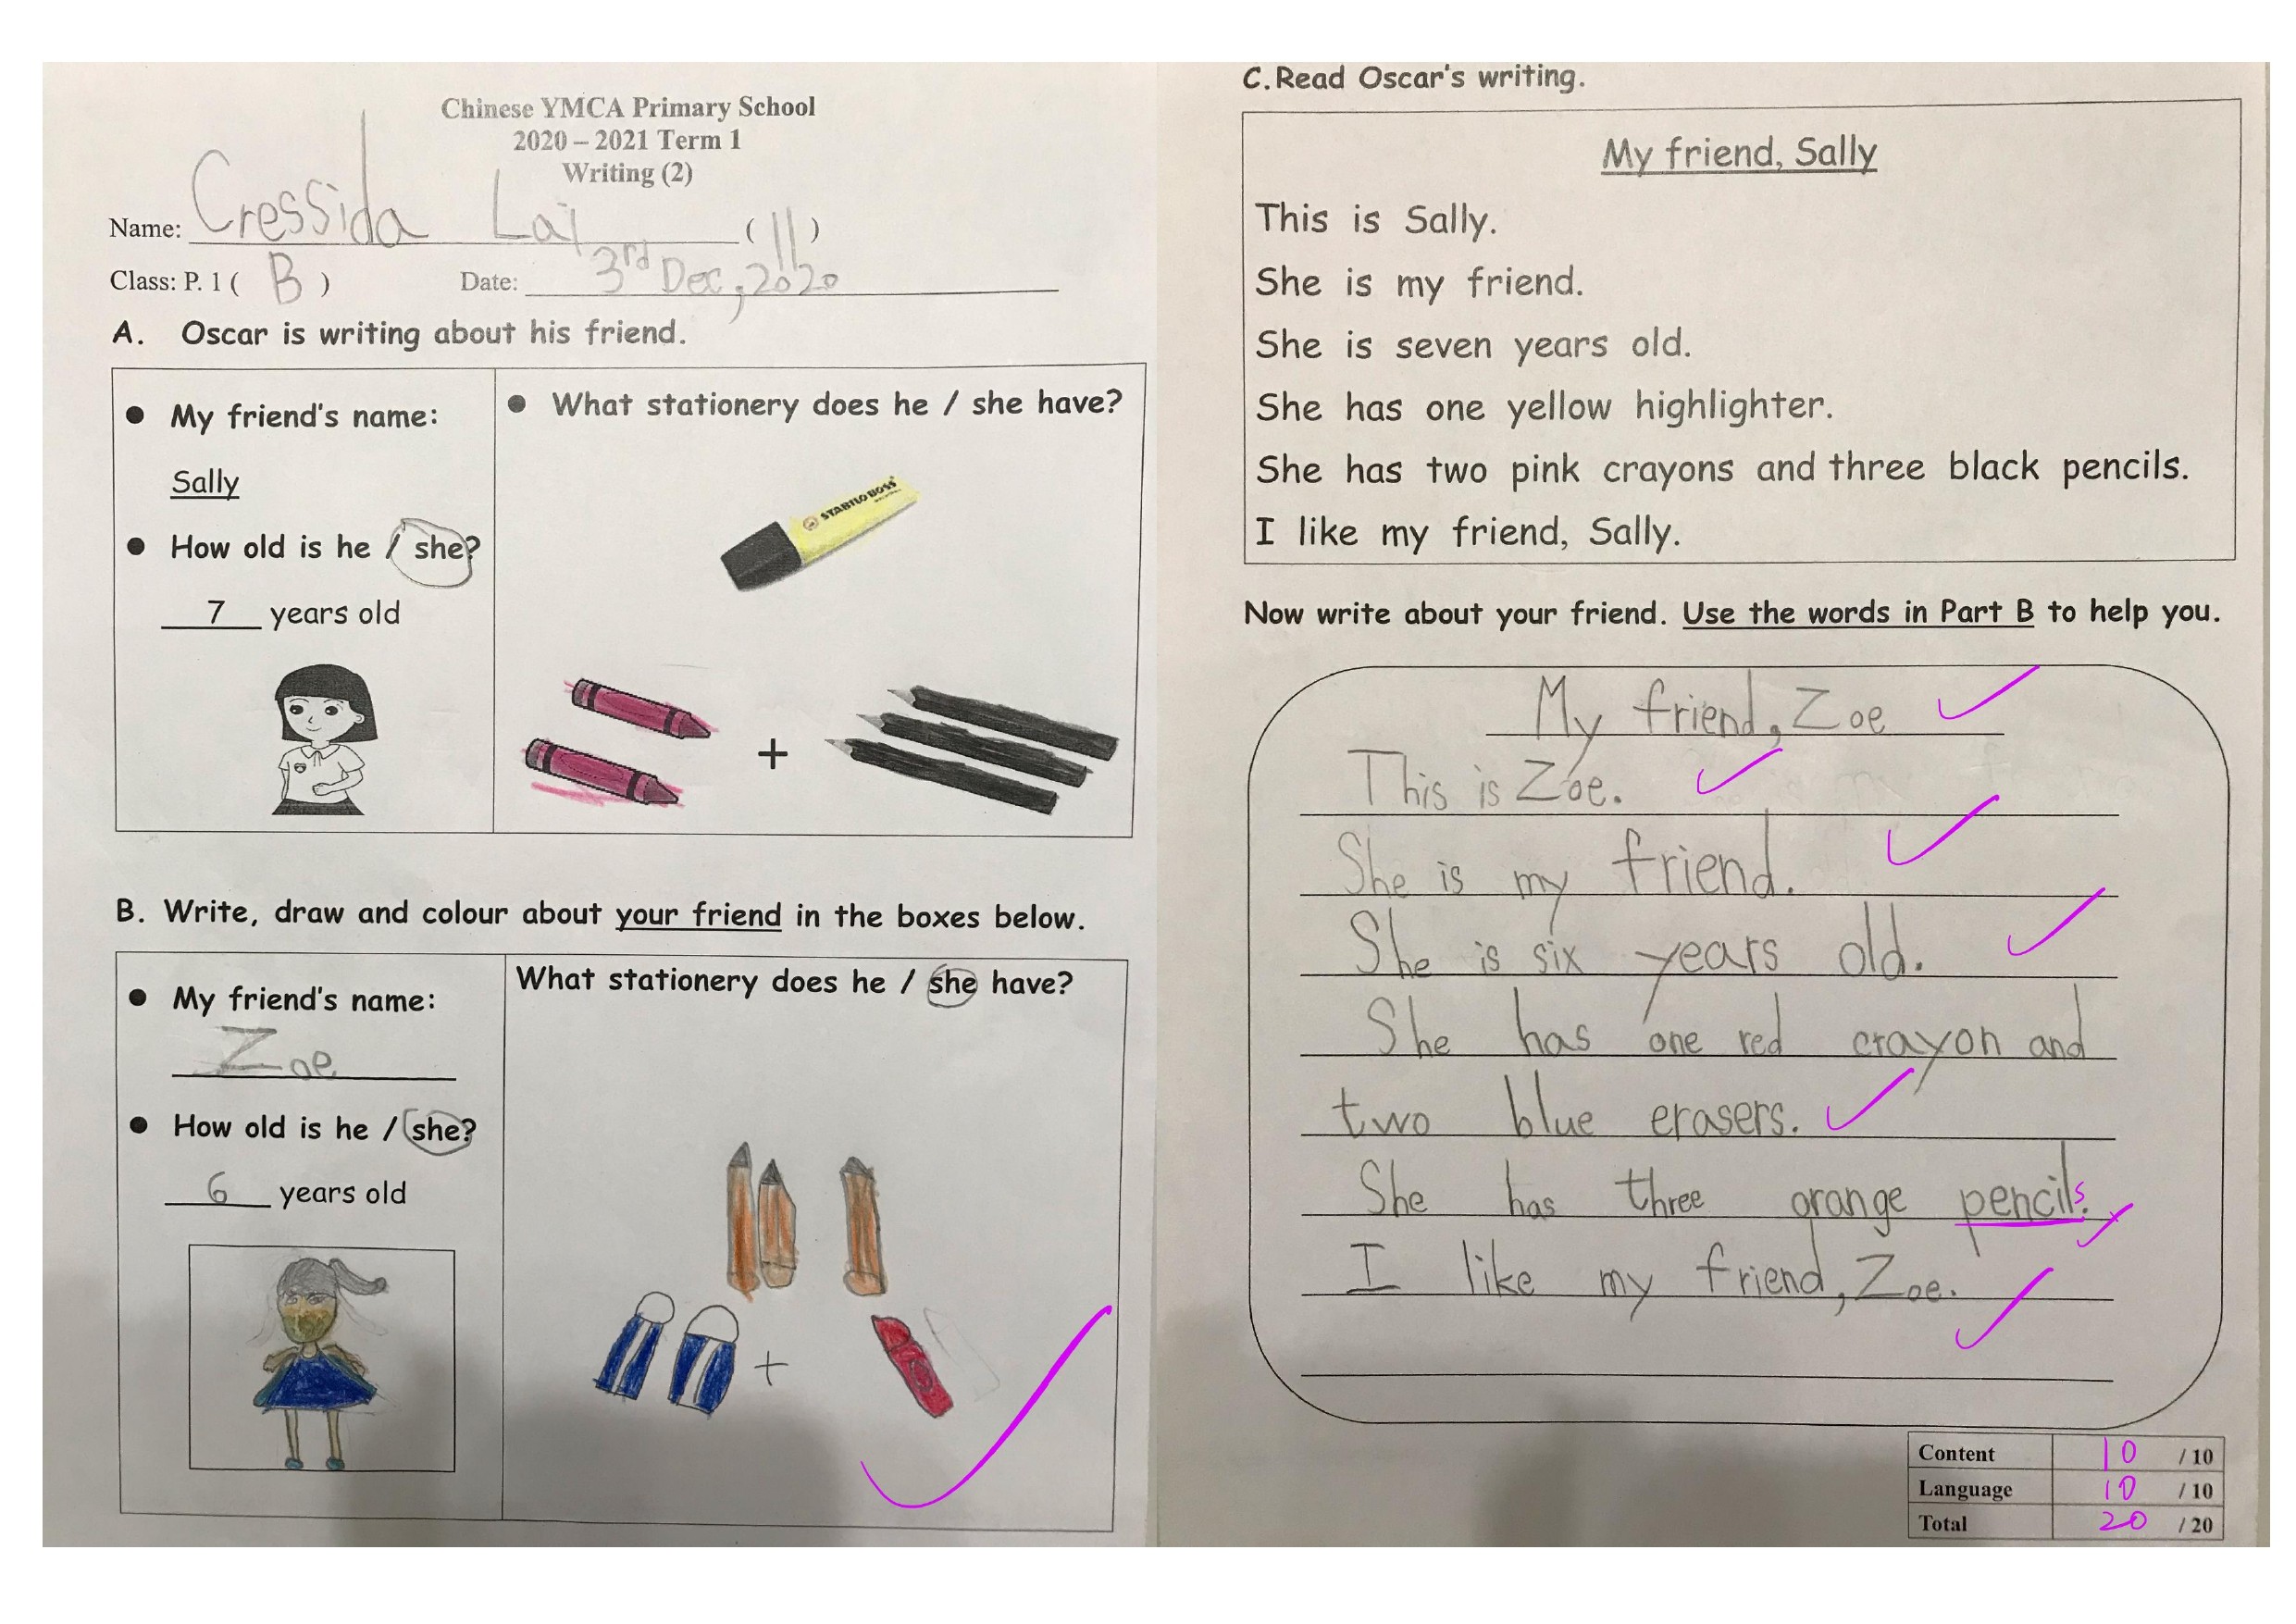 Chinese YMCA Primary School
2020 – 2021 Term 1
Writing (2)
Name: Cressida Lai (11)
Class: P. 1 ( B ) Date: 3rd Dec, 2020
A. Oscar is writing about his friend.
● My friend's name:
Sally
● How old is he / she?
7 years old
● What stationery does he / she have?
STABILO BOSS
+
B. Write, draw and colour about your friend in the boxes below.
● My friend's name:
Zoe
● How old is he / she?
6 years old
What stationery does he / she have?
+
C.Read Oscar's writing.
My friend, Sally
This is Sally.
She is my friend.
She is seven years old.
She has one yellow highlighter.
She has two pink crayons and three black pencils.
I like my friend, Sally.
Now write about your friend. Use the words in Part B to help you.
My friend, Zoe
This is Zoe.
She is my friend.
She is six years old.
She has one red crayon and
two blue erasers.
She has three orange pencils.
I like my friend, Zoe.
Content 10 / 10
Language 10 / 10
Total 20 / 20